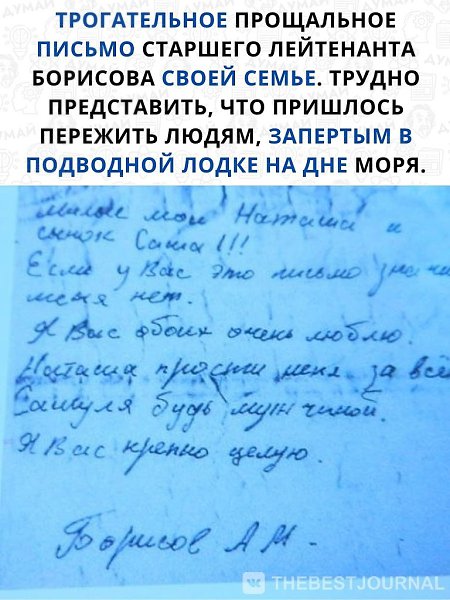 ТРОГАТЕЛЬНОЕ ПРОЩАЛЬНОЕ
ПИСЬМО СТАРШЕГО ЛЕЙТЕНАНТА
БОРИСОВА СВОЕЙ СЕМЬЕ. ТРУДНО
ПРЕДСТАВИТЬ, ЧТО ПРИШЛОСЬ
ПЕРЕЖИТЬ ЛЮДЯМ, ЗАПЕРТЫМ В
ПОДВОДНОЙ ЛОДКЕ НА ДНЕ МОРЯ.
Милые мои Наташа и
сынок Саша!!!
Если у Вас это письмо значи
меня нет.
Я Вас обоих очень люблю.
Наташа прости меня за всё
Сашуля будь мужчиной.
Я Вас крепко целую.
Борисов А М.
THEBESTJOURNAL